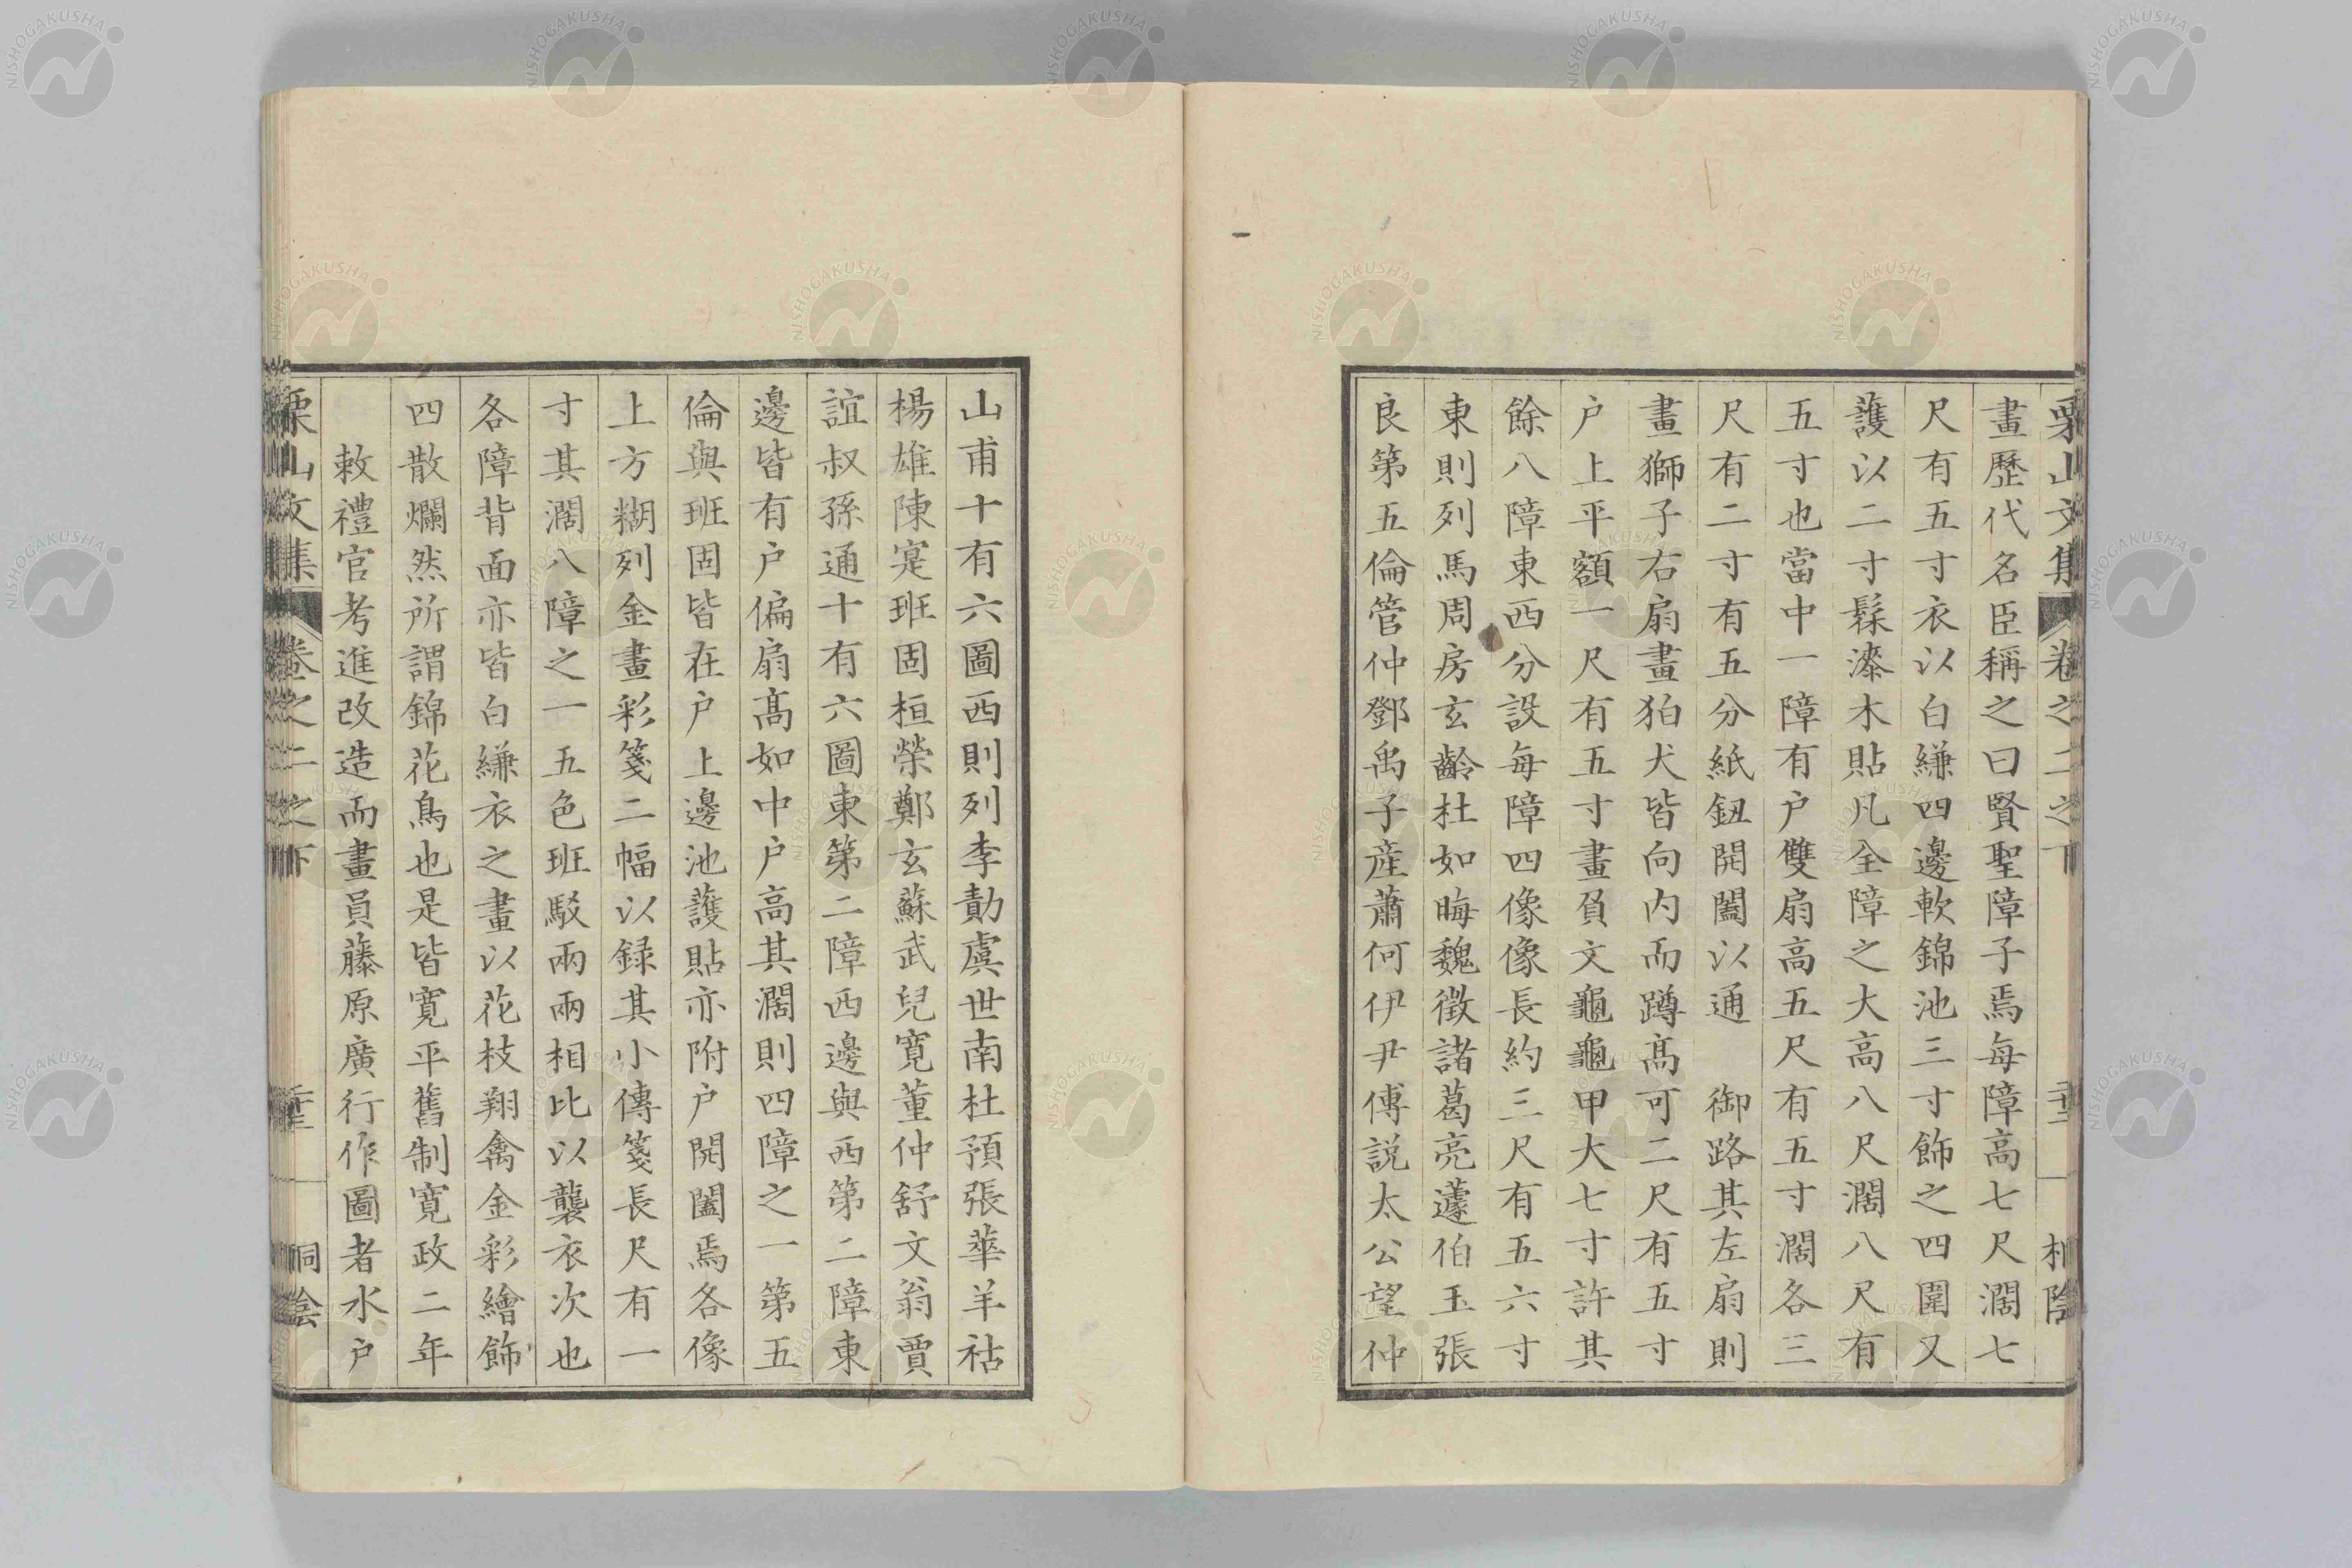 栗山文集 卷之二之下 二十二 桐陰
畫歷代名臣稱之曰賢聖障子焉每障高七尺濶七
尺有五寸衣以白縑四邊軟錦池三寸飾之四圍又
護以二寸髹漆木貼凡全障之大高八尺濶八尺有
五寸也當中一障有户雙扇高五尺有五寸濶各三
尺有二寸有五分紙鈕開闔以通　御路其左扇則
畫獅子右扇畫狛犬皆向内而蹲髙可二尺有五寸
户上平額一尺有五寸畫負文龜龜甲大七寸許其
餘八障東西分設每障四像像長約三尺有五六寸
東則列馬周房玄齡杜如晦魏徵諸葛亮蘧伯玉張
良第五倫管仲鄧禹子產蕭何伊尹傅説太公望仲
山甫十有六圖西則列李勣虞世南杜預張華羊祜
楊雄陳寔班固桓榮鄭玄蘇武兒寛董仲舒文翁賈
誼叔孫通十有六圖東第二障西邊與西第二障東
邊皆有户偏扇髙如中户高其濶則四障之一第五
倫與班固皆在户上邊池護貼亦附户開闔焉各像
上方糊列金畫彩箋二幅以録其小傳箋長尺有一
寸其濶八障之一五色班駁兩兩相比以襲衣次也
各障背面亦皆白縑衣之畫以花枝翔禽金彩繪飾
四散爛然所謂錦花鳥也是皆寛平舊制寛政二年
敕禮官考進改造而畫員藤原廣行作圖者水户
栗山文集 卷之二之下 桐陰